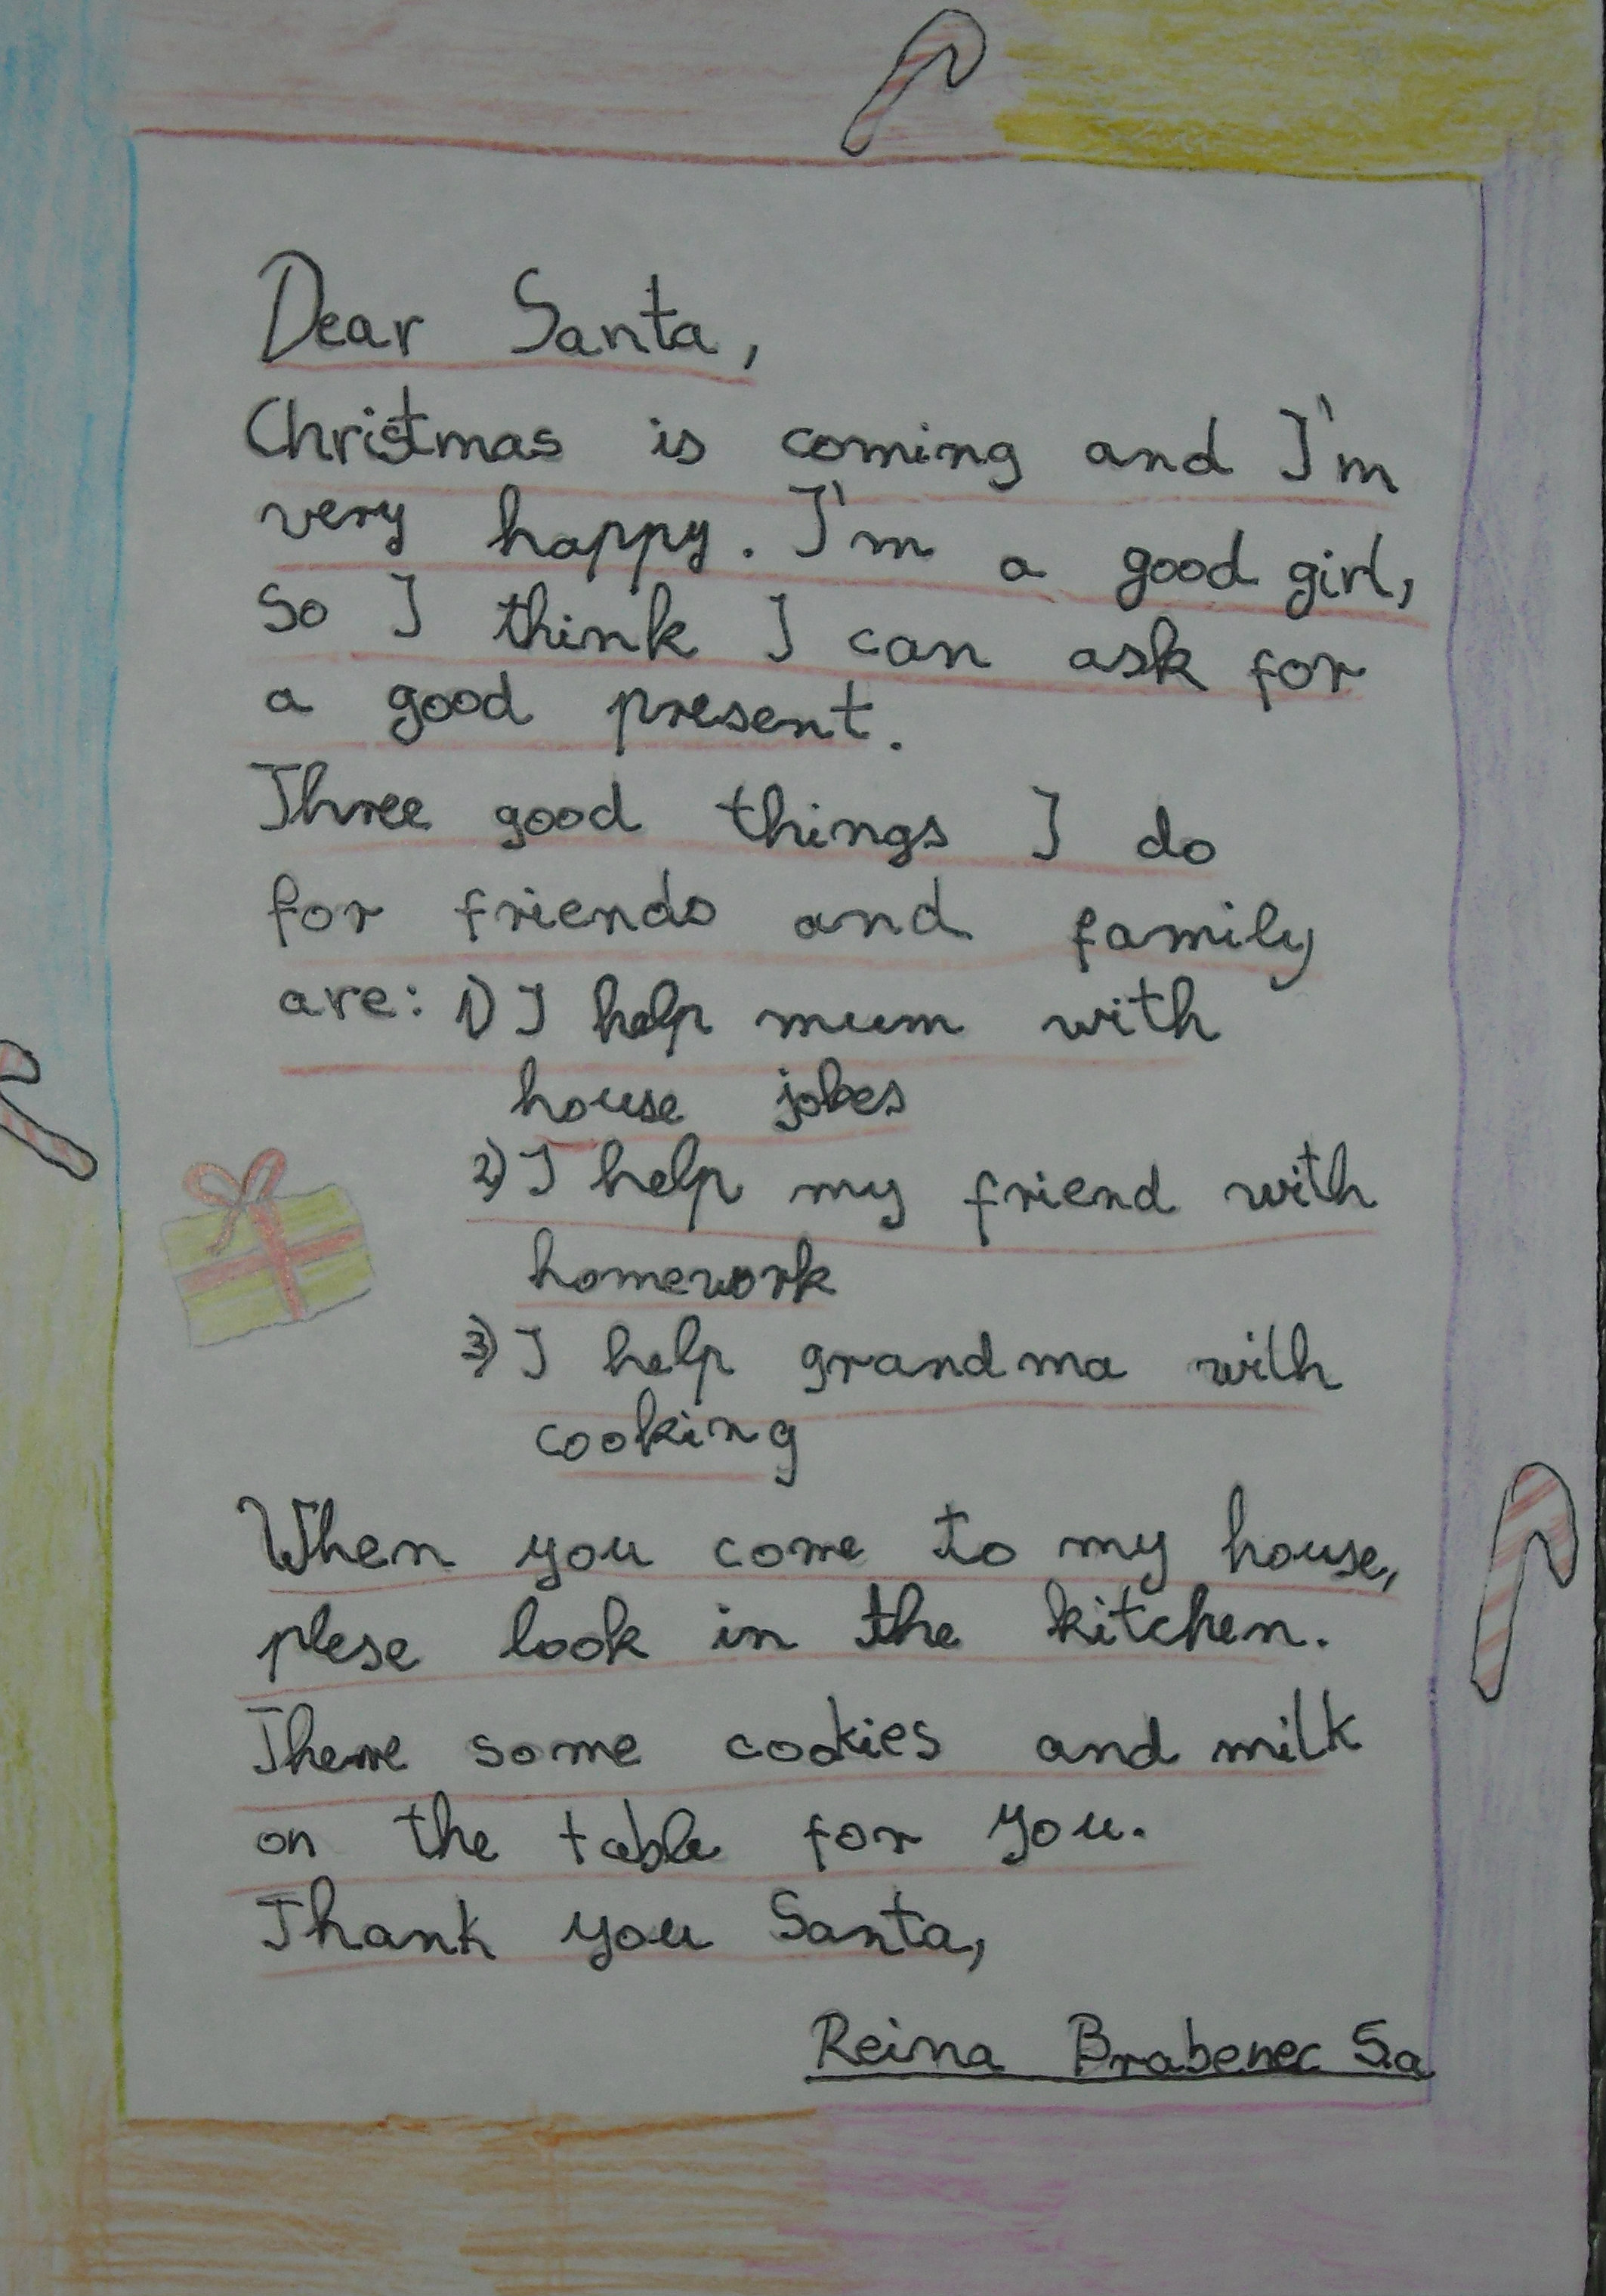 Dear Santa,
Christmas is coming and I'm
very happy. I'm a good girl,
so I think I can ask for
a good present.
Three good things I do
for friends and family
are: 1) I help mum with
house jobes
2) I help my friend with
homework
3) I help grandma with
cooking
When you come to my house,
plese look in the kitchen.
There some cookies and milk
on the table for you.
Thank you Santa,
Reina Brabenec 5.a